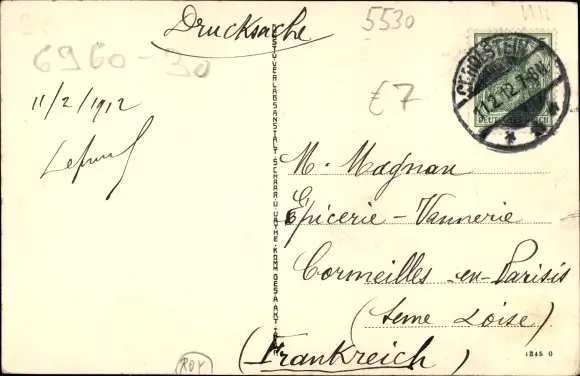 Drucksache
5530
6960-30
€7
11/2/1912
GEROLSTEIN
11.2.12.7-8N.
DEUTSCHES REICH
M. Magnan
Epicerie - Vannerie
Cormeilles-en-Parisis
(Seine Loise)
(Frankreich)
KUNSTVERLAGSANSTALT·SCHAAR·U·DATHE·KOM·GES·A·AKT·TRIER
ROY
1345 0